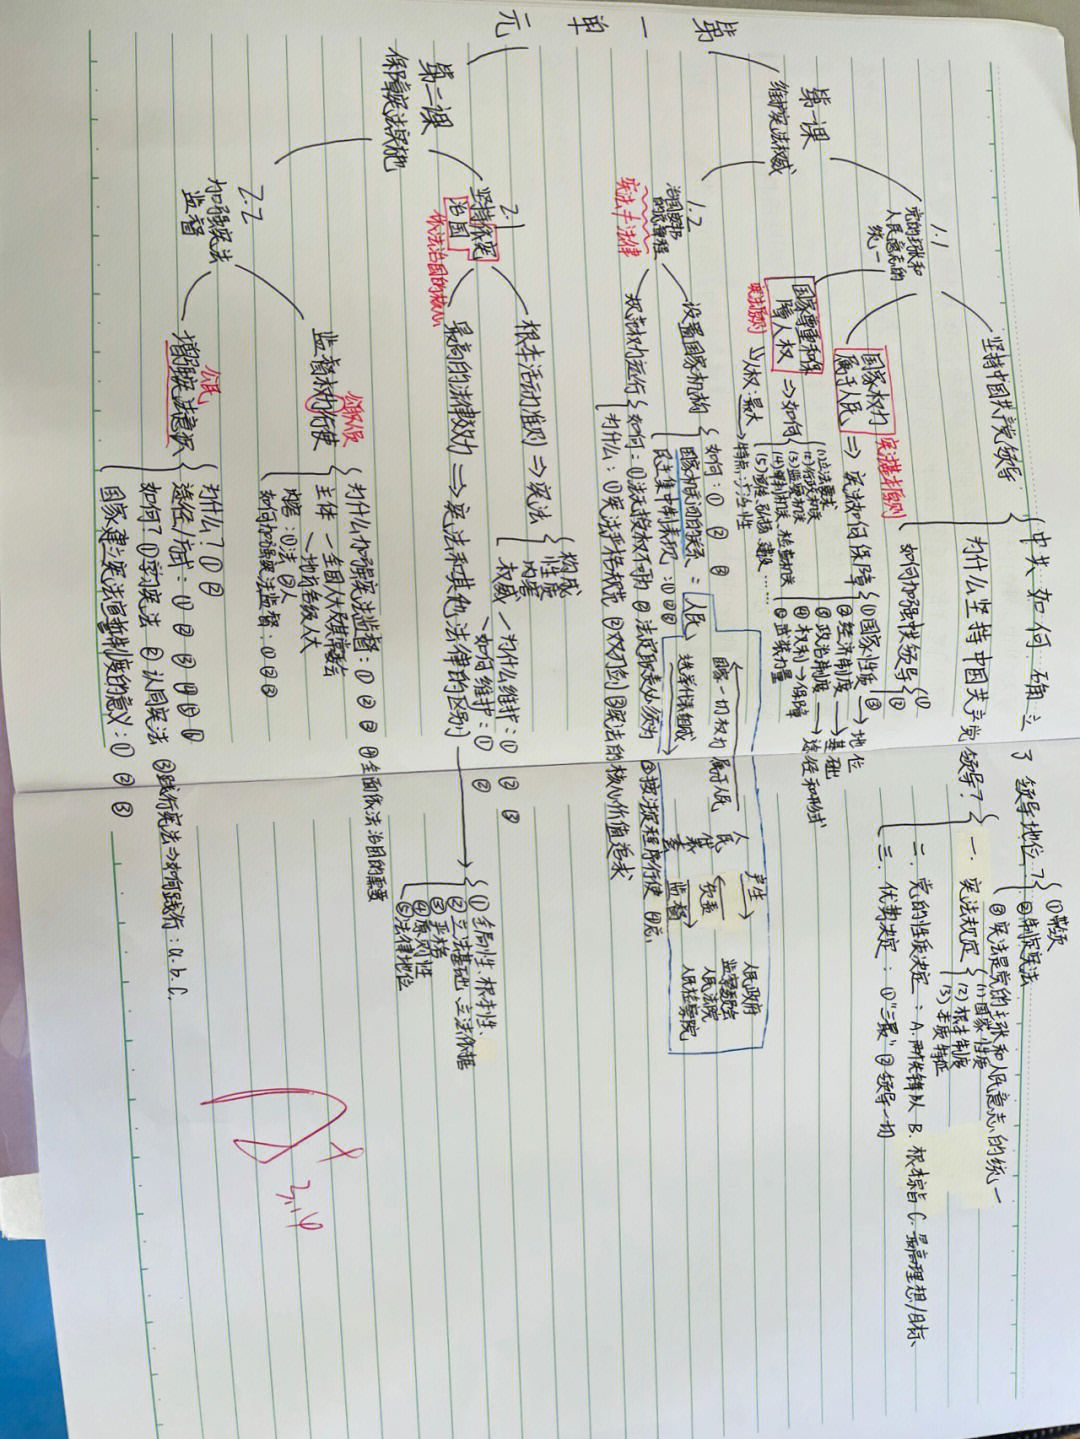 第一单元
第一课
维护宪法权威
1.1
党的主张和
人民意志的
统一
坚持中国共产党领导
中共如何确立了领导地位?
①带领
②制定宪法
③宪法是党的主张和人民意志的统一
为什么坚持中国共产党领导?
一. 宪法规定
(1)国家性质
(2)根本制度
(3)本质特征
二. 党的性质决定: A.两个先锋队 B.根本宗旨 C.最高理想/目标
三. 优势决定: ①"三最" ②领导一切
如何加强党领导
(1)
(2)
国家权力
属于人民
宪法基本原则
⇒ 宪法如何保障
①国家性质 → 地位
②经济制度 → 基础
③政治制度 → 途径和形式
④权利→保障
⑤武装力量
国家尊重和保
障人权
宪法原则
⇒ 如何
(1)立法要求
(2)行政机关
(3)监察机关
(4)审判机关、检察机关
(5)宣传、弘扬、建设……
⇒人权:最大
特点:广泛性
1.2
治国安邦
的总章程
宪法≠法律
设置国家机构
如何:① ② ③
国家机关间的关系 =
民主集中制表现:①②③
人民
国家一切权力属于人民
选举代表组成
人民代表大会
产生
负责
监督
人民政府
监察委员会
人民法院
人民检察院
规范权力运行
如何:①法无授权不可为 ②法定职责必须为 ③按法定程序行使
为什么:①宪法严格规范 ②双刃剑 ③宪法的核心价值追求
第二课
保障宪法实施
2.1
坚持依宪
治国
依法治国的核心
根本活动准则 ⇒ 宪法
构成
性质
内容
权威
为什么维护:① ② ③
如何维护:① ②
最高的法律效力 ⇒ 宪法和其他法律的区别
①全局性、根本性、
②立法基础、立法依据
③严格
④原则性
⑤法律地位
2.2
加强宪法
监督
监督权力行使
为什么加强宪法监督:① ② ③ ④全面依法治国的需要
主体
全国人大及其常委会
地方各级人大
内容:①法 ②人
如何加强宪法监督:①②③
公民
增强宪法意识
为什么?① ②
途径/方式:① ② ③ ④ ⑤ ⑥
如何?①学习宪法 ②认同宪法 ③践行宪法⇒如何践行:a.b.c.
国家建立宪法宣誓制度的意义:① ② ③